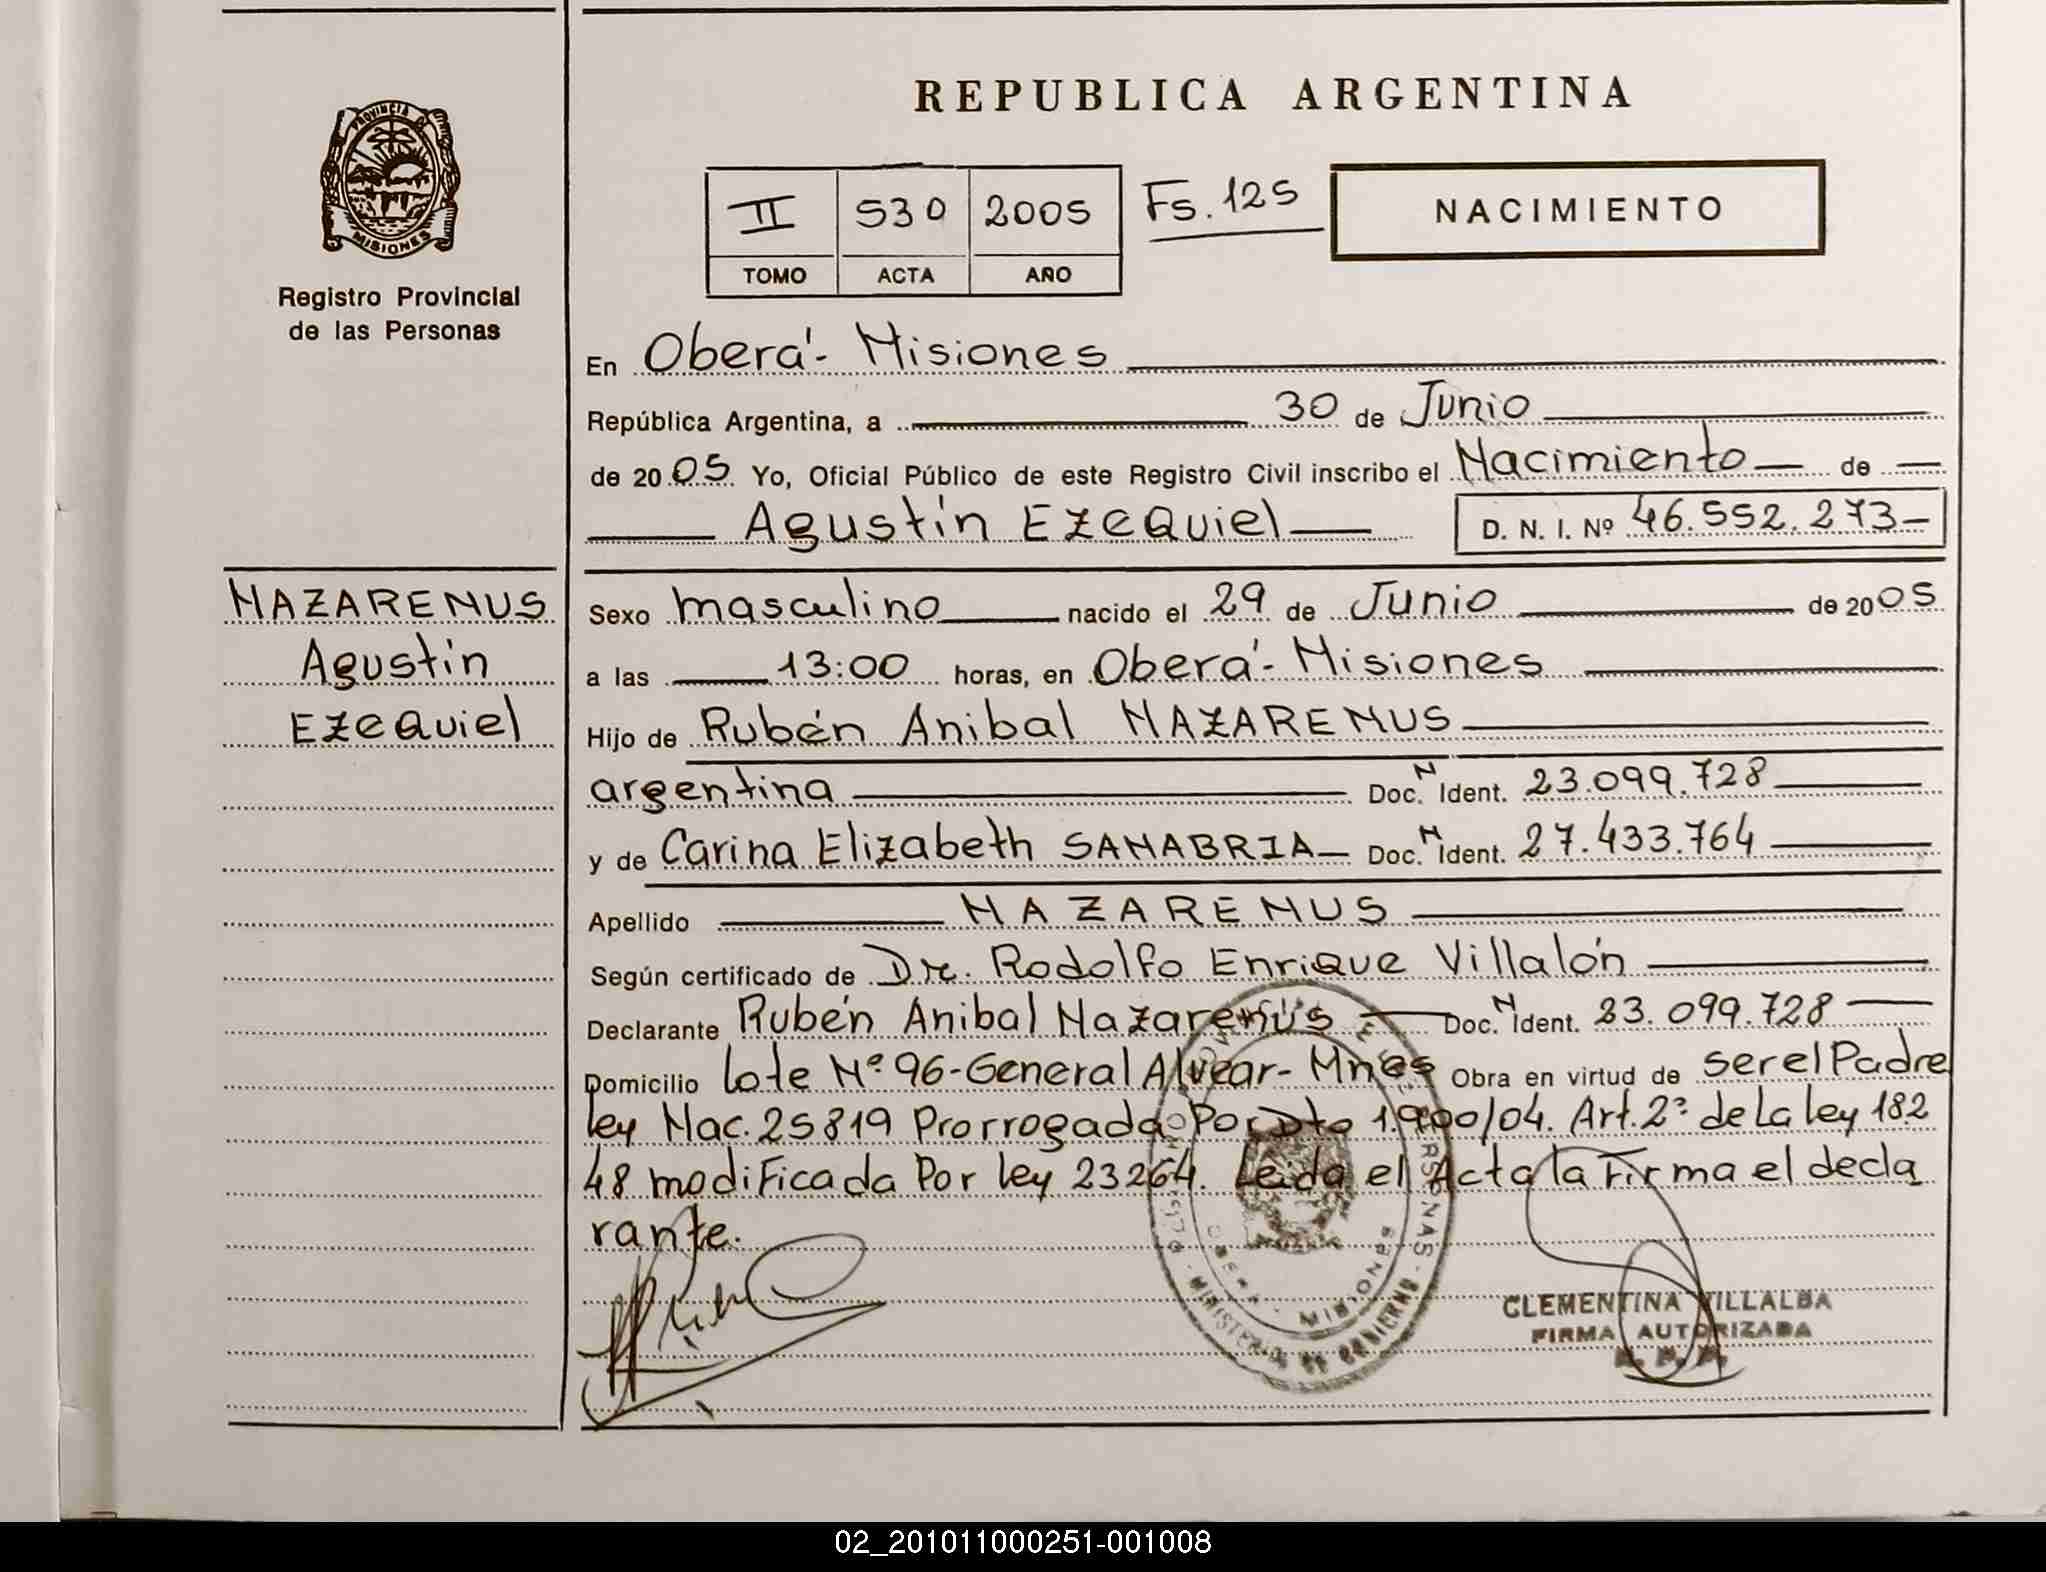 REPUBLICA ARGENTINA
PROVINCIA DE
MISIONES
Registro Provincial
de las Personas
II 530 2005 Fs. 125
TOMO ACTA AÑO
NACIMIENTO
En Oberá - Misiones
República Argentina, a 30 de Junio
de 2005 Yo, Oficial Público de este Registro Civil inscribo el Nacimiento de
Agustín Ezequiel D. N. I. Nº 46.552.273
NAZARENUS
Agustín
Ezequiel
Sexo masculino nacido el 29 de Junio de 2005
a las 13:00 horas, en Oberá - Misiones
Hijo de Rubén Anibal NAZARENUS
argentina Doc. N Ident. 23.099.728
y de Carina Elizabeth SANABRIA Doc. N Ident. 27.433.764
Apellido NAZARENUS
Según certificado de Dr. Rodolfo Enrique Villalón
Declarante Rubén Anibal Nazarenus Doc. N Ident. 23.099.728
Domicilio Lote Nº 96 - General Alvear - Mnes Obra en virtud de ser el Padre
Ley Nac. 25819 Prorrogada Por Dto 1.900/04. Art. 2º de La Ley 182
48 modificada Por Ley 23264. Leida el Acta la Firma el decla
rante.
MINISTERIO DE GOBIERNO
OBERA - MISIONES
CLEMENTINA VILLALBA
FIRMA AUTORIZADA
02_201011000251-001008